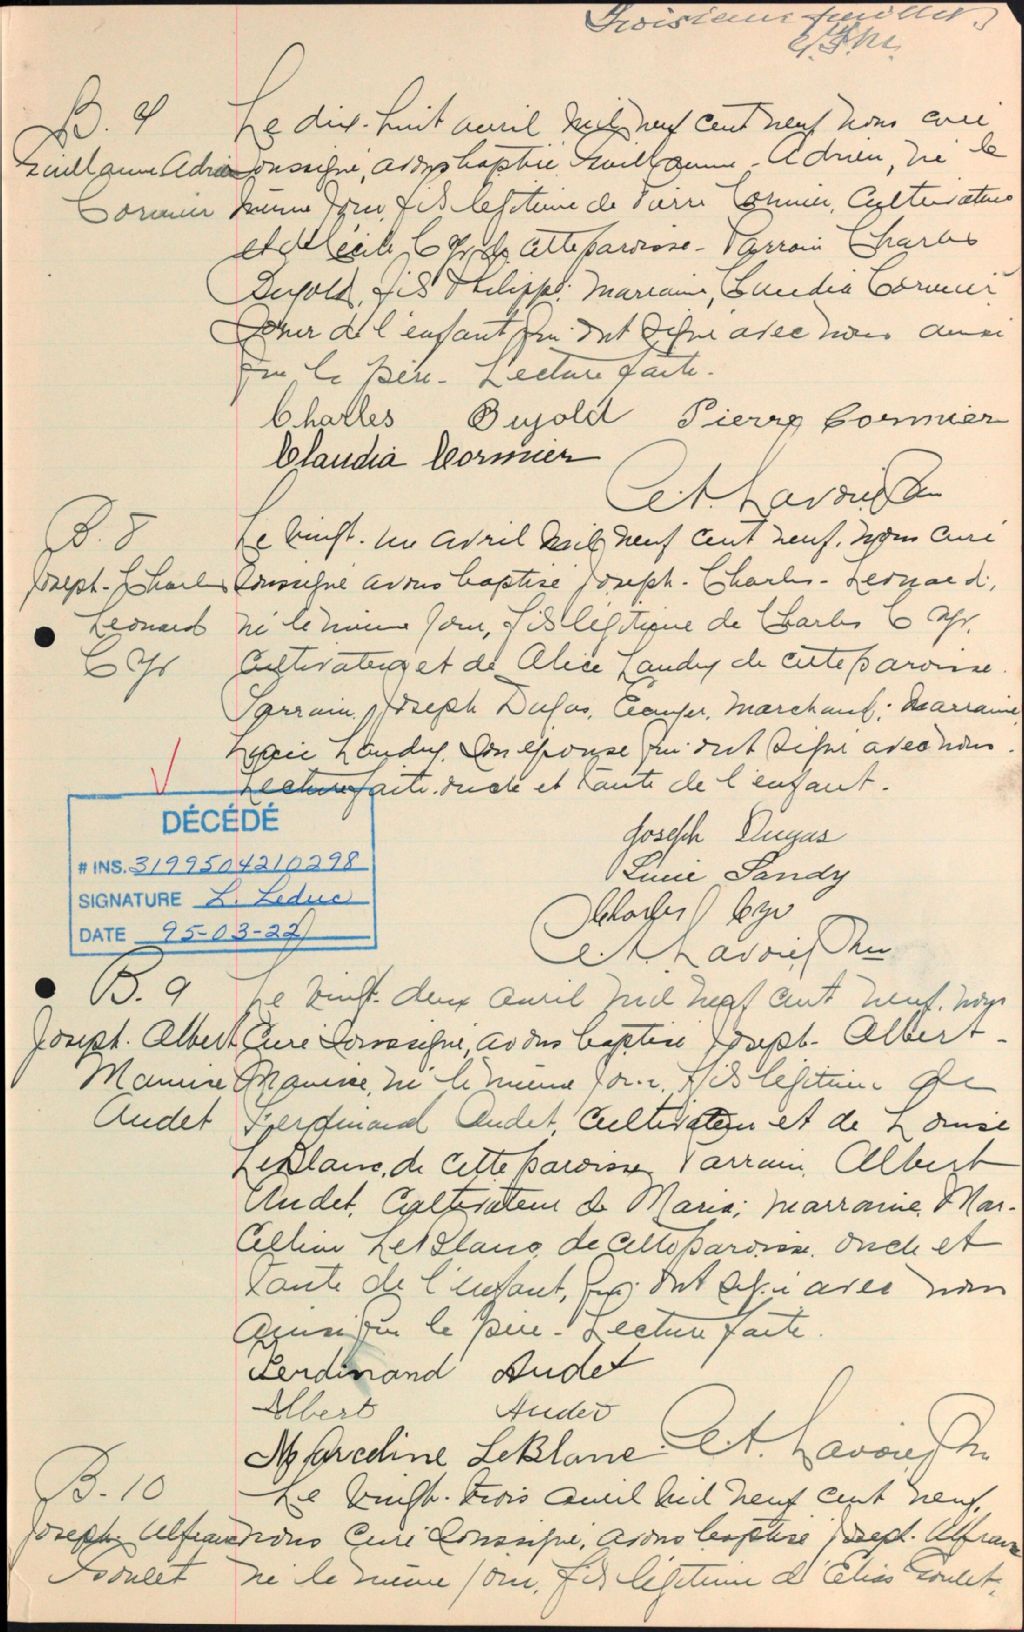 Troisième feuillet
B. 7
Guillaume Adrien
Cormier
Le dix-huit avril mil neuf cent neuf nous curé
soussigné, avons baptisé Guillaume-Adrien, né le
même jour, fils légitime de Pierre Cormier, cultivateur
et de Cécile Cyr, de cette paroisse - Parrain Charles
Bujold, fils Philippe; marraine, Claudia Cormier
soeur de l'enfant qui ont signé avec nous ainsi
que le père - Lecture faite.
Charles Bujold Pierre Cormier
Claudia Cormier
B. 8
Joseph-Charles
Leonard
Cyr
Le vingt-un avril mil neuf cent neuf, nous curé
soussigné avons baptisé Joseph-Charles-Leonard,
né le même jour, fils légitime de Charles Cyr,
cultivateur et de Alice Landry de cette paroisse.
Parrain, Joseph Dugas, Ecuyer, marchand; marraine,
Lucie Landry, son épouse qui ont signé avec nous.
Lecture faite. oncle et tante de l'enfant.
Joseph Dugas
Lucie Landry
Charles Cyr
DÉCÉDÉ
# INS. 3199504210298
SIGNATURE L. Leduc
DATE 95-03-22
B. 9
Joseph-Albert
Maurice
Audet
Le vingt-deux avril mil neuf cent neuf, nous
curé soussigné, avons baptisé Joseph-Albert-
Maurice, né le même jour, fils légitime de
Ferdinand Audet, cultivateur et de Louise
LeBlanc, de cette paroisse, Parrain, Albert
Audet, cultivateur de Maria; marraine, Mar-
celline LeBlanc, de cette paroisse, oncle et
tante de l'enfant, qui ont signé avec nous
ainsi que le père - Lecture faite.
Ferdinand Audet
Albert Audet
Marceline LeBlanc
B. 10
Joseph
Goulet
Le vingt-trois avril mil neuf cent neuf,
nous curé soussigné, avons baptisé Joseph
né le même jour, fils légitime d'Elias Goulet,